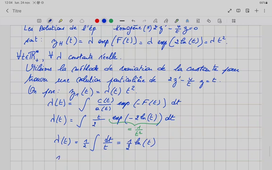 Les solutions de l'éq homogène (H) 2z' - 4/t z = 0
sont z_H(t) = λ exp(F(t)) = λ exp(2 ln(t)) = λ t².
∀t∈ℝ*₊, λ constante réelle.
Utilisons la méthode de variation de la constante pour
trouver une solution particulière de 2z' - 4/t z = t
On pose: (t) = λ(t) t²
λ(t) = ∫ c(t)/a(t) exp(-F(t)) dt
λ(t) = ∫ t/2 exp(-2 ln(t)) dt
= 1/t²
λ(t) = 1/2 ∫ dt/t = 1/2 ln(t)